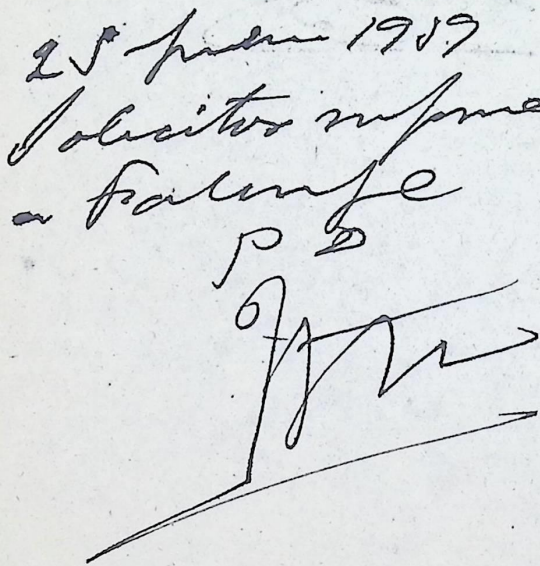 25 1959
Solicitar informe
a Falange
P D